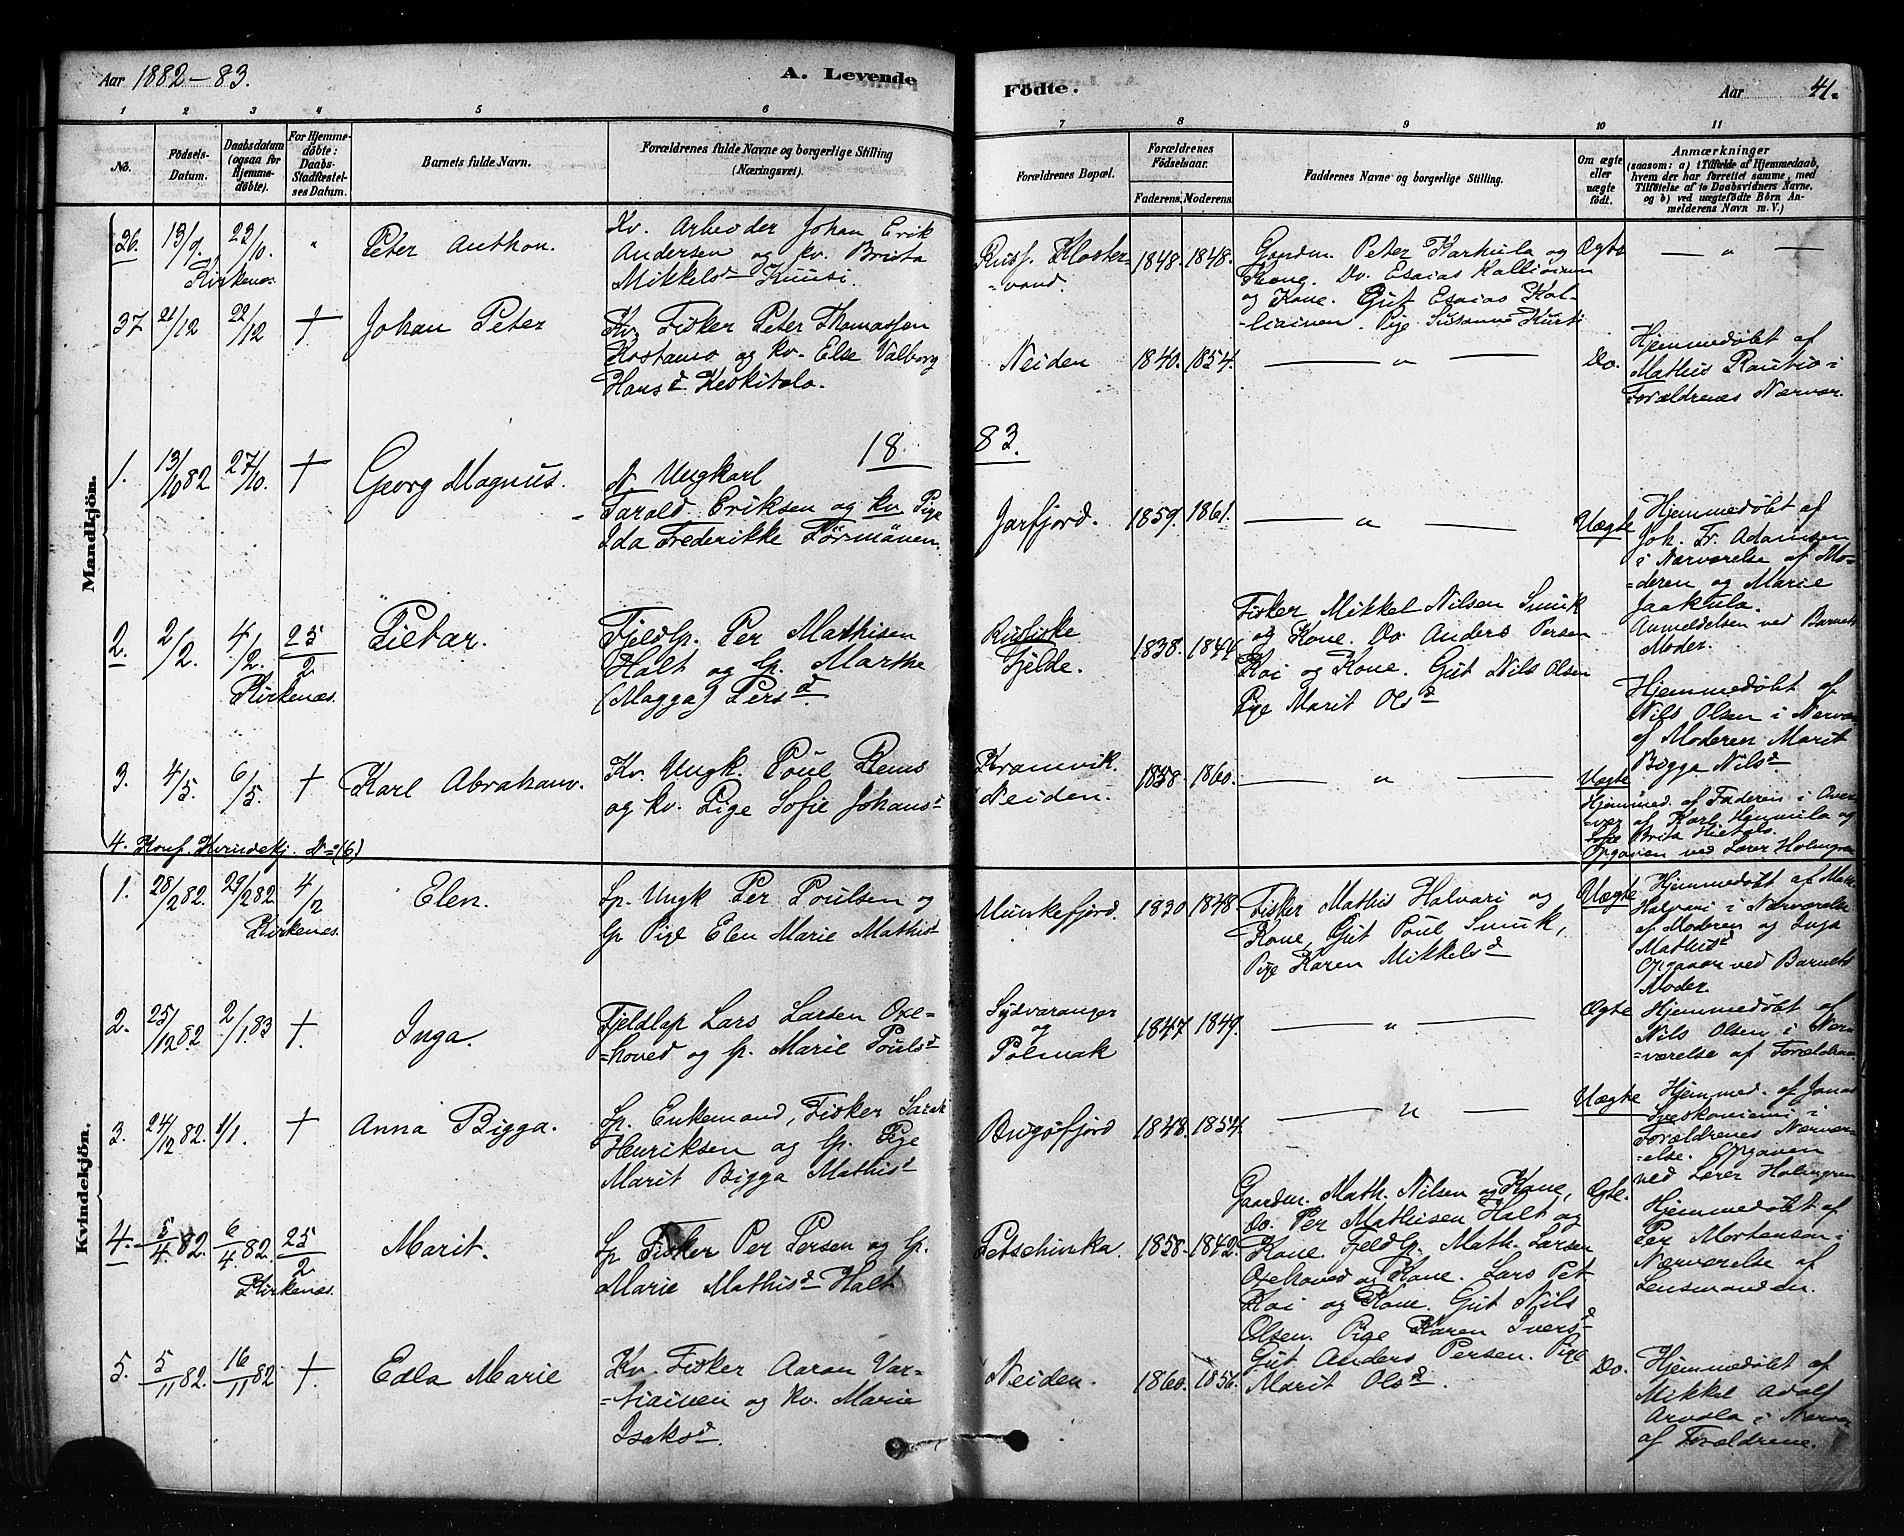 Aar 1882-83.
A. Levende
Fødte.
Aar
41.
1 2 3 4 5 6 7 8 9 10 11
No.
Fødsels-Datum.
Daabsdatum (ogsaa for Hjemme-døbte).
For Hjemme-døbte: Daabs-Stadfæstel-ses Datum.
Barnets fulde Navn.
Forældrenes fulde Navne og borgerlige Stilling
(Næringsvei).
Forældrenes Bopæl.
Forældrenes Fødselsaar.
Faderens. Moderens.
Faddernes Navne og borgerlige Stilling.
Om ægte eller uægte født.
Anmærkninger
(saasom: a) i Tilfælde af Hjemmedaab,
hvem der har forrettet samme, med
Tilføielse af to Daabsvidners Navne.
og b) ved uægtefødte Børn An-
melderens Navn m. V.)
Mandkjön.
36. 13/9 Kirkenæs. "
Peter Anthon.
Kv. Arbeider Johan Erik
Andersen og kv. Brita
Mikkelsd Kuusi.
Russ. Kloster-
-vand.
1848. 1848.
Gaardm. Peter Karkula og
Kone. Do. Esaias
og Kone. Gut Esaias Kal-
-liainen. Pige Susanne
Ægte
— " —
37 21/12 22/12 †
Johan Peter
Kv. Fisker Peter Thomassen
og kv. Else Valborg
Hansd Keskitalo.
Neiden
1840. 1854.
— " —
Do.
Hjemmedøbt af
Mathis Rautio i
Forældrenes Nærvær.
18 83.
1. 13/10 82 27/10. †
Georg Magnus.
N. Ungkarl
Tarald Eriksen og kv. Pige
Ida Frederikke Förmänen.
Jarfjord.
1859. 1861.
— " —
Uægte
Hjemmedøbt af
Joh. Fr. Adamsen
i Nærværelse af Mo-
-deren og Marie
Jaakula.
Anmeldelsen ved Barnets
Moder.
2. 2/2. 4/2. 25/2 Kirkenæs.
Pietar.
Fjeldlp. Per Mathisen
Halt og lp. Marthe
(Magga) Persd.
Russiske
Fjelde.
1838. 1844
Fisker Mikkel Nilsen Smuk
og Kone. Do Anders Persen
Koi og Kone. Gut Nils Olsen
Pige Marit Olsd
Hjemmedøbt af
Nils Olsen i Nærvær
af Moderen Marit
Bigga Nilsd
3. 4/5. 6/5. †
Karl Abraham.
Kv. Ungk. Poul Rems
og kv. Pige Sofie Johansd
Kramvik.
Neiden.
1858. 1860.
— " —
Uægte
Hjemmed. af Faderen i Over-
-vær af Karl Henmila og
Brita Hietala.
Opgaven ved Lærer Holmgren
4. Konf. Kvindekj. No (6)
Kvindekjön.
1. 28/2 82. 29/2 82 4/2 Kirkenæs.
Elen.
Lp. Ungk Per Poulsen og
lp Pige Elen Marie Mathisd
Munkefjord.
1830 1848
Fisker Mathis Halvari og
Kone, Gut Poul Smuk,
Pige Karen Mikkelsd
Uægte
Hjemmedøbt af Math
Halvari i Nærværelse
af Moderen og Inga
Mathisd
Opgaven ved Barnets
Moder.
2. 25/12 82. 2/1 83 †.
Inga.
Fjeldlap Lars Larsen Oxe-
-hoved og lp. Marie Poulsd
Sydvaranger
og
Polmak
1847. 1849.
— " —
Ægte
Hjemmedøbt af
Nils Olsen i Nær-
-værelse af Forældrene
3. 24/12 82. 1/1. †
Anna Bigga.
Lp. Enkemand, Fisker Isak
Henriksen og lp. Pige
Marit Bigga Mathisd
Bugøfjord
1848. 1854.
— " —
Uægte
Hjemmed. af Jonas
i
Forældrenes Nærvær-
-else. Opgaven
ved Lærer Holmgren
4. 5/4 82. 6/4 82. 25/2 Kirkenæs.
Marit.
Lp Fisker Per Persen og lp.
Marie Mathisd Halt
Petschinka.
1858. 1842.
Gaardm. Math. Nilsen og Kone,
Do. Per Mathisen Halt og
Kone. Fjeldlp. Math. Larsen
Oxehoved og Kone. Lars Pet
Koi og Kone. Gut Nils
Olsen. Pige Karen Iversd
Gut Anders Persen. Pige
Marit Olsd.
Ægte.
Hjemmedøbt af
Per Mortensen
Nærværelse af
Lensmanden.
5. 5/11 82. 16/11 82 †.
Edla Marie
Kv. Fisker Aaron Var-
-tiainen og kv. Marie
Isaksd.
Neiden.
1860. 1856.
Do.
Hjemmedøbt af
Mikkel Adolf
Arvola i Nærvær
af Forældrene.